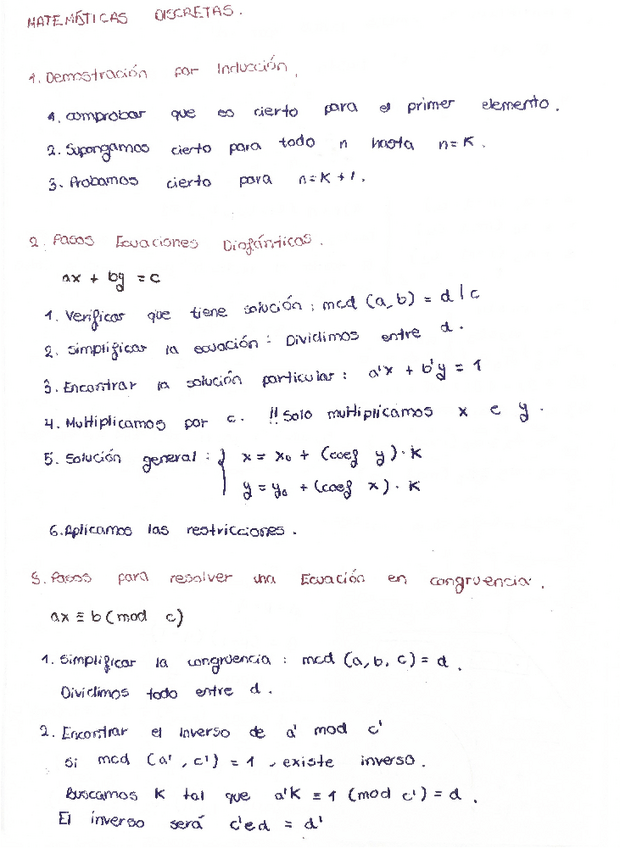 MATEMÁTICAS DISCRETAS.
1. Demostración por Inducción.
1. comprobar que es cierto para el primer elemento.
2. Supongamos cierto para todo n hasta n=K.
3. Probamos cierto para n=K+1.
2. Pasos Ecuaciones Diofánticas.
ax + by = c
1. Verificar que tiene solución: mcd (a,b) = d | c
2. Simplificar la ecuación: Dividimos entre d.
3. Encontrar la solución particular: a'x + b'y = 1
4. Multiplicamos por c. !! Solo multiplicamos x e y.
5. Solución general: { x = x₀ + (coef y)·K
y = y₀ + (coef x)·K
6. Aplicamos las restricciones.
3. Pasos para resolver una Ecuación en congruencia.
ax ≡ b (mod c)
1. Simplificar la congruencia: mcd (a,b,c) = d.
Dividimos todo entre d.
2. Encontrar el inverso de a' mod c'
Si mcd (a', c') = 1, existe inverso.
Buscamos K tal que a'K ≡ 1 (mod c') = d.
El inverso será c'ed = d'